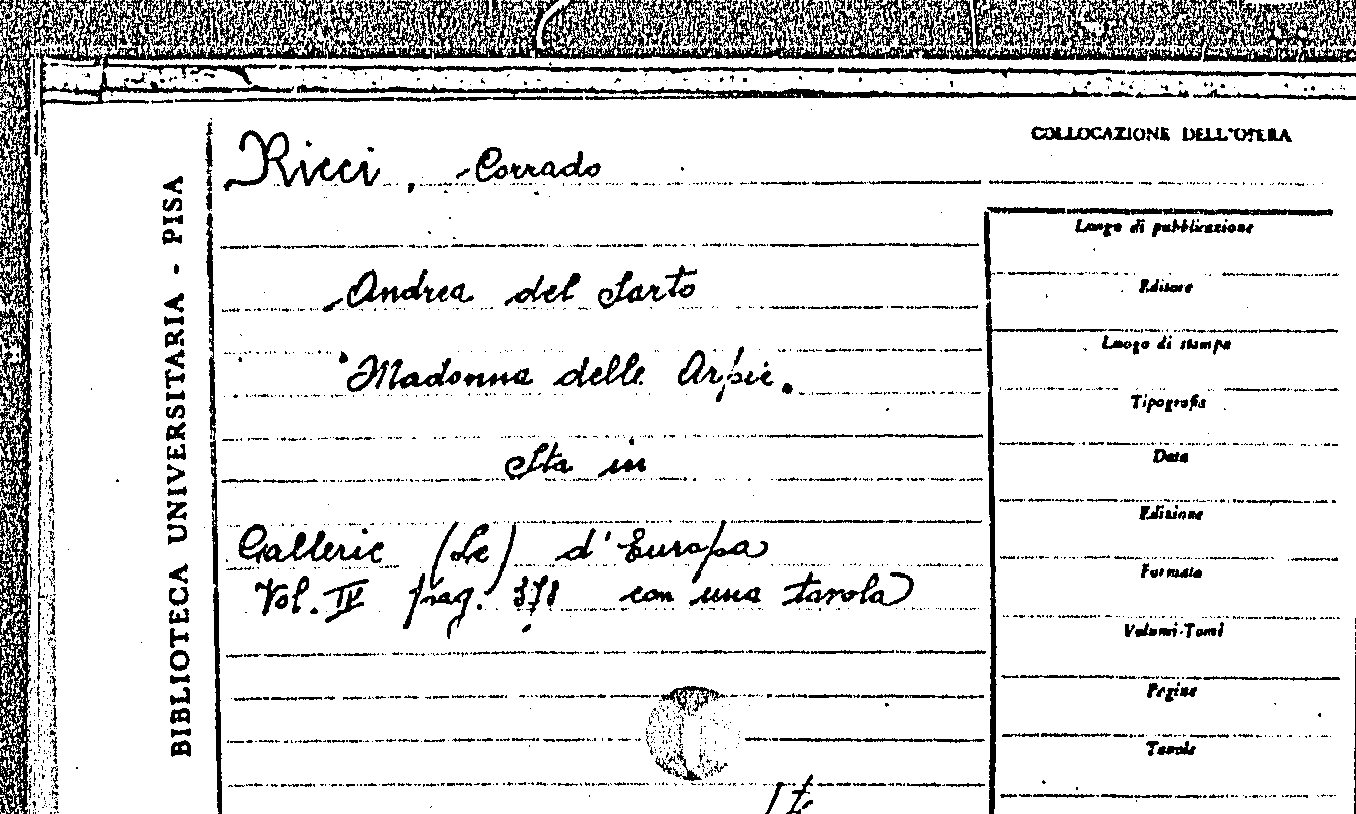 BIBLIOTECA UNIVERSITARIA - PISA
Ricci, Corrado
Andrea del Sarto
"Madonna delle Arpie.
Sta in
Gallerie (Le) d'Europa
Vol. IV pag. con una tavola
COLLOCAZIONE DELL'OPERA
Luogo di pubblicazione
Editore
Luogo di stampa
Tipografia
Data
Edizione
Formato
Volumi-Tomi
Pagine
Tavole